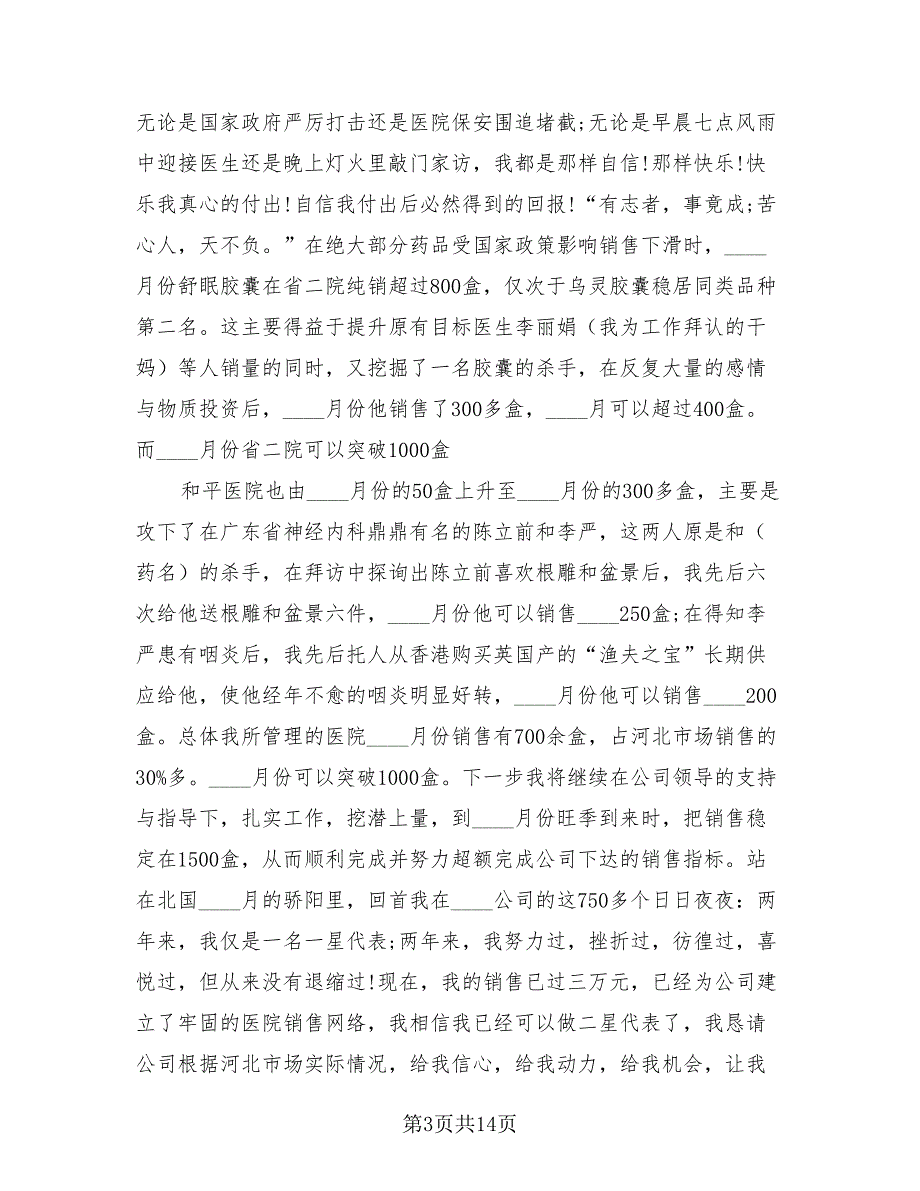 无论是国家政府严厉打击还是医院保安围追堵截;无论是早晨七点风雨
中迎接医生还是晚上灯火里敲门家访，我都是那样自信!那样快乐!快
乐我真心的付出!自信我付出后必然得到的回报!“有志者，事竟成;苦
心人，天不负。”在绝大部分药品受国家政策影响销售下滑时，____
月份舒眠胶囊在省二院纯销超过800盒，仅次于乌灵胶囊稳居同类品种
第二名。这主要得益于提升原有目标医生李丽娟（我为工作拜认的干
妈）等人销量的同时，又挖掘了一名胶囊的杀手，在反复大量的感情
与物质投资后，____月份他销售了300多盒，____月可以超过400盒。
而____月份省二院可以突破1000盒
和平医院也由____月份的50盒上升至____月份的300多盒，主要是
攻下了在广东省神经内科鼎鼎有名的陈立前和李严，这两人原是和（
药名）的杀手，在拜访中探询出陈立前喜欢根雕和盆景后，我先后六
次给他送根雕和盆景六件，____月份他可以销售____250盒;在得知李
严患有咽炎后，我先后托人从香港购买英国产的“渔夫之宝”长期供
应给他，使他经年不愈的咽炎明显好转，____月份他可以销售____200
盒。总体我所管理的医院____月份销售有700余盒，占河北市场销售的
30%多。____月份可以突破1000盒。下一步我将继续在公司领导的支持
与指导下，扎实工作，挖潜上量，到____月份旺季到来时，把销售稳
定在1500盒，从而顺利完成并努力超额完成公司下达的销售指标。站
在北国____月的骄阳里，回首我在____公司的这750多个日日夜夜：两
年来，我仅是一名一星代表;两年来，我努力过，挫折过，彷徨过，喜
悦过，但从来没有退缩过!现在，我的销售已过三万元，已经为公司建
立了牢固的医院销售网络，我相信我已经可以做二星代表了，我恳请
公司根据河北市场实际情况，给我信心，给我动力，给我机会，让我
第3页共14页